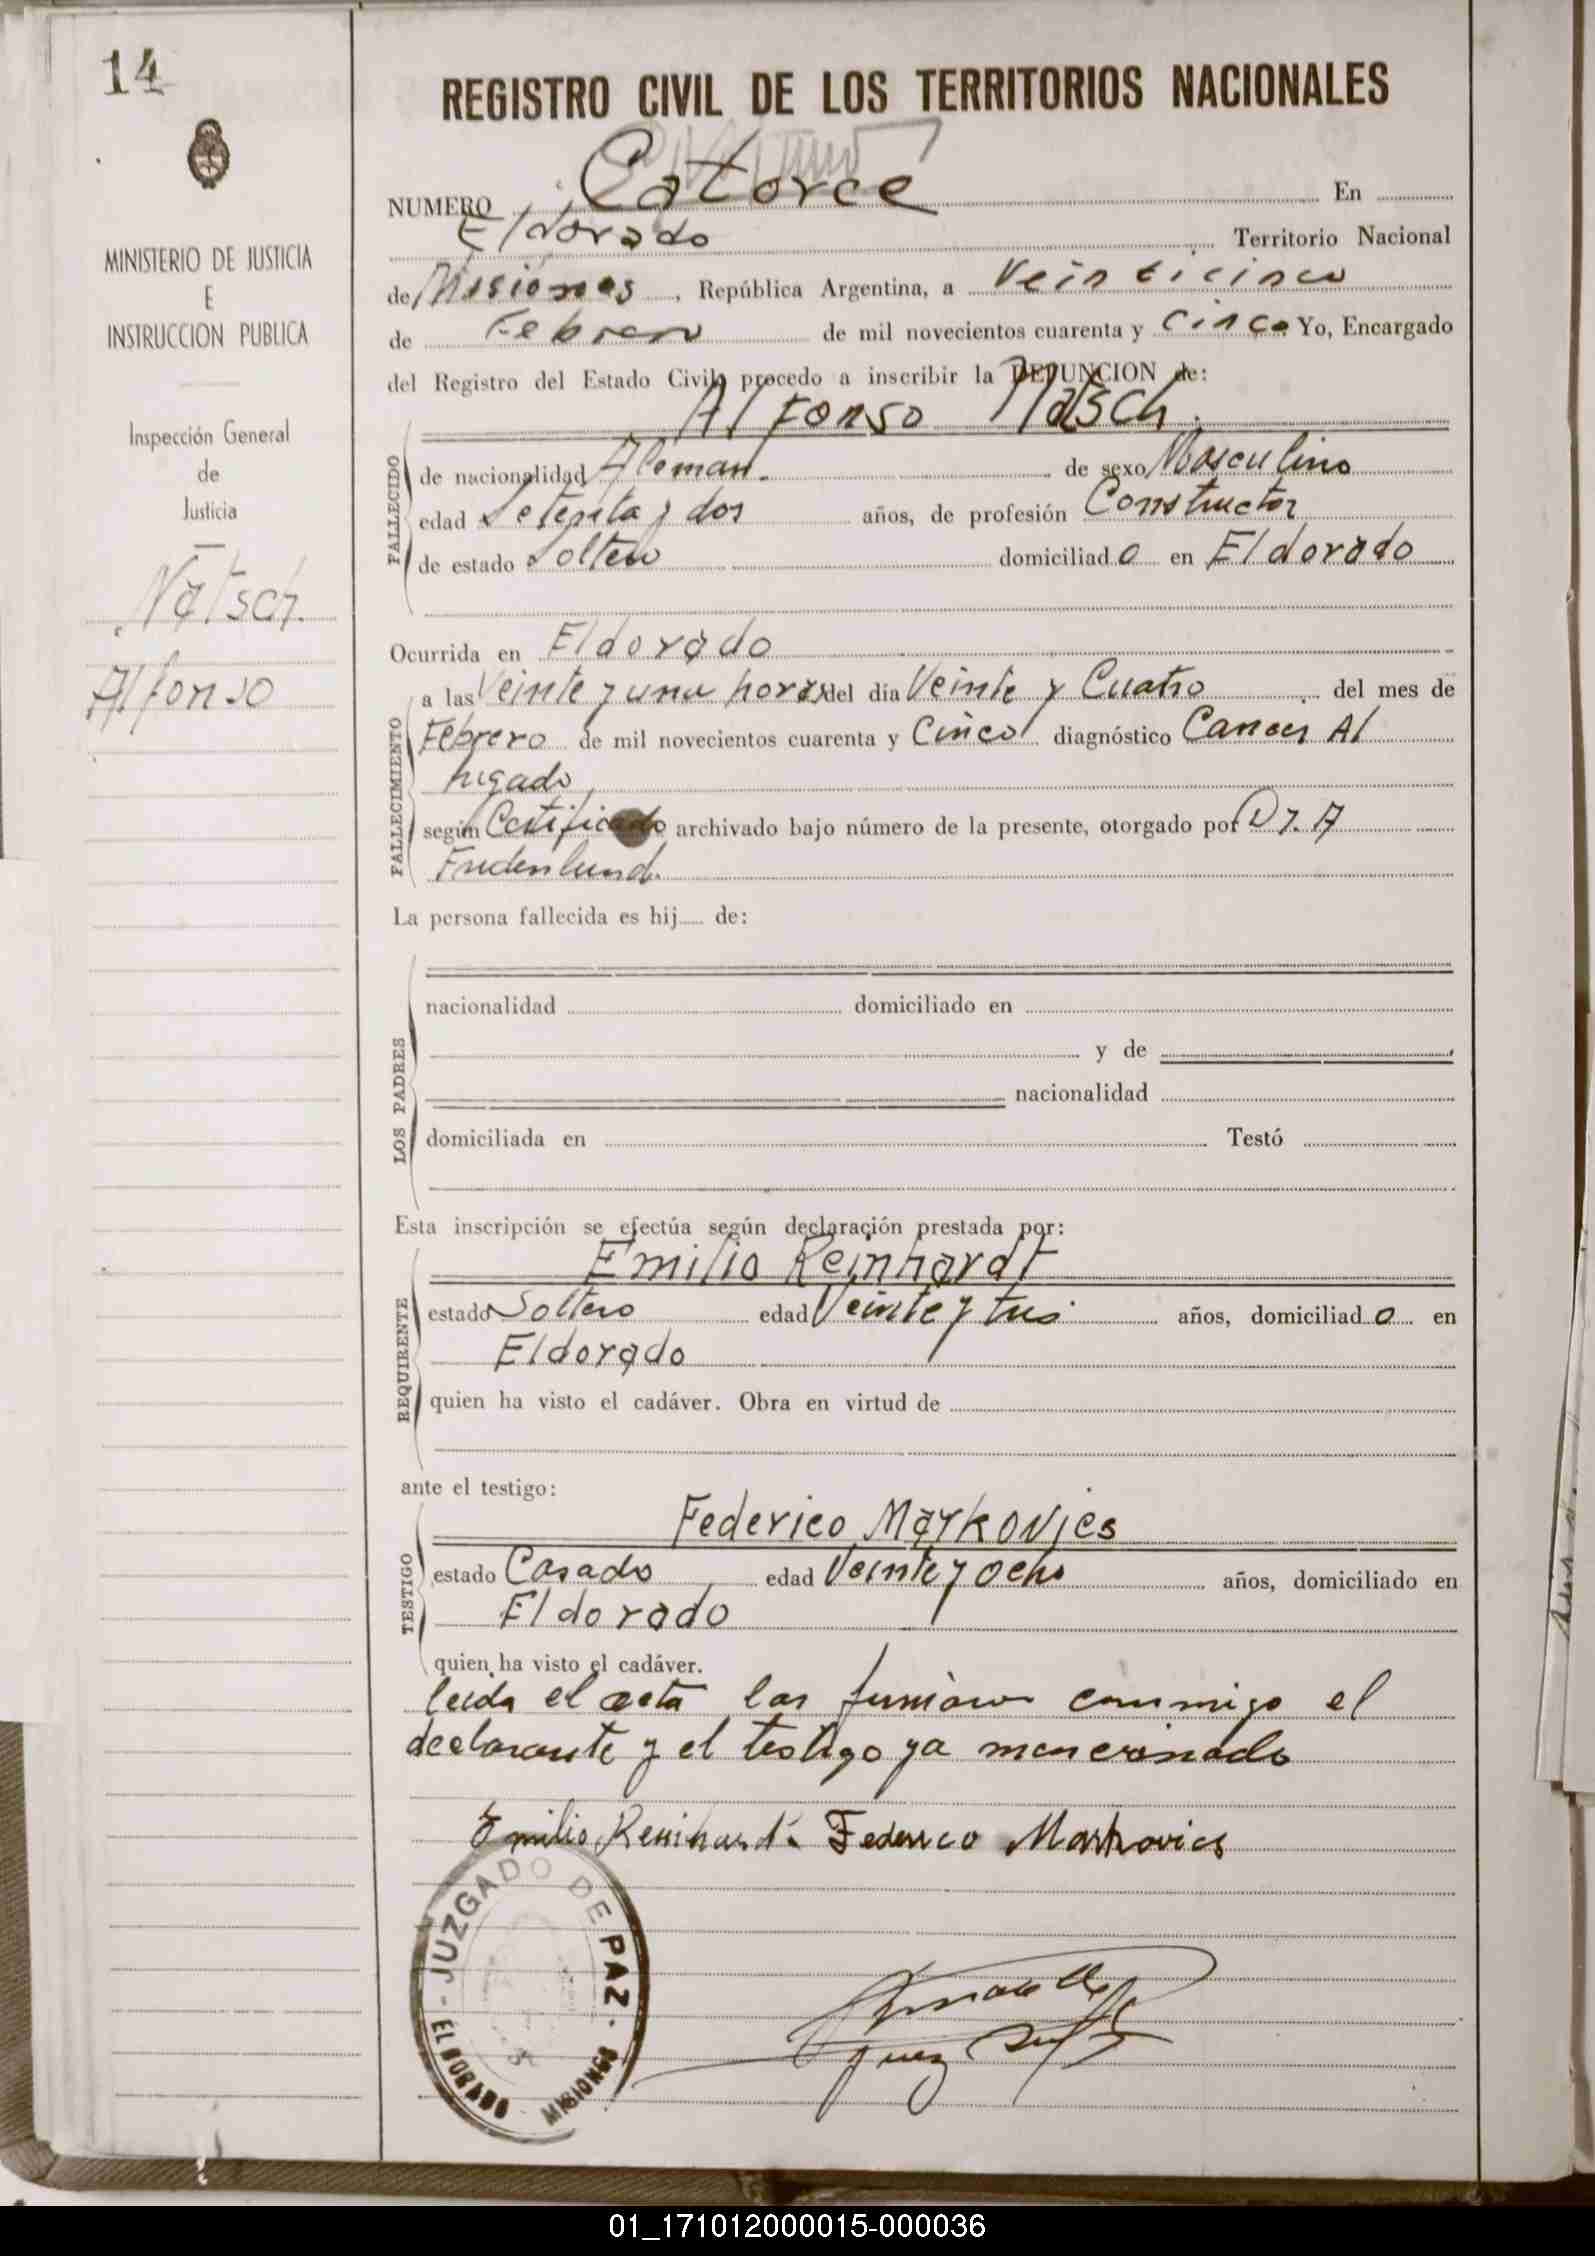 14
MINISTERIO DE JUSTICIA
E
INSTRUCCION PUBLICA
Inspección General
de
Justicia
Natsch.
Alfonso
REGISTRO CIVIL DE LOS TERRITORIOS NACIONALES
NUMERO Catorce En
Eldorado Territorio Nacional
de Misiones, República Argentina, a Veinticinco
de Febrero de mil novecientos cuarenta y Cinco Yo, Encargado
del Registro del Estado Civil, procedo a inscribir la DEFUNCION de:
Alfonso Natsch.
FALLECIDO
de nacionalidad Aleman. de sexo Masculino
edad Setenta y dos años, de profesión Constructor
de estado Soltero domiciliado en Eldorado
Ocurrida en Eldorado
FALLECIMIENTO
a las Veinte y una horas del día Veinte y Cuatro del mes de
Febrero de mil novecientos cuarenta y Cinco diagnóstico Cancer Al
higado
según Certificado archivado bajo número de la presente, otorgado por Dr. A
La persona fallecida es hij de:
LOS PADRES
nacionalidad domiciliado en
y de
nacionalidad
domiciliada en Testó
Esta inscripción se efectúa según declaración prestada por:
Emilio Reinhardt
REQUIRENTE
estado Soltero edad Veinte y tres años, domiciliado en
Eldorado
quien ha visto el cadáver. Obra en virtud de
ante el testigo:
Federico Markovics
TESTIGO
estado Casado edad Veinte y ocho años, domiciliado en
Eldorado
quien ha visto el cadáver.
leida el acta la firmaron conmigo el
declarante y el testigo ya mencionado
Emilio Reinhardt. Federico Markovics
JUZGADO DE PAZ
ELDORADO MISIONES
Juez
01_171012000015-000036